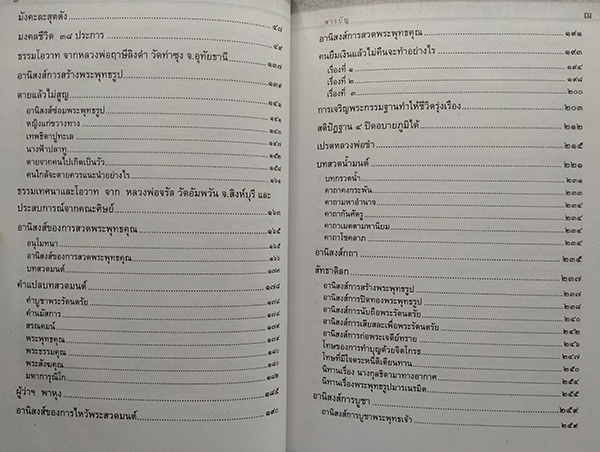 มังคะละสุตตัง ๔๗
มงคลชีวิต ๓๘ ประการ ๔๙
ธรรมโอวาท จากหลวงพ่อฤาษีลิงดำ วัดท่าซุง จ.อุทัยธานี ๑๓๗
อานิสงส์การสร้างพระพุทธรูป ๑๓๙
ตายแล้วไม่สูญ ๑๔๑
อานิสงส์ซ่อมพระพุทธรูป ๑๔๑
หญิงแก่ขวางทาง ๑๔๓
เทพธิดาปูทะเล
นางฟ้าปลาทู ๑๕๒
ตายจากคนไปเกิดเป็นวัว
คนใกล้จะตายควรแนะนำอย่างไร ๑๖๑
ธรรมเทศนาและโอวาท จาก หลวงพ่อจรัล วัดอัมพวัน จ.สิงห์บุรี และ
ประสบการณ์จากคณะศิษย์ ๑๖๓
อานิสงส์ของการสวดพระพุทธคุณ ๑๖๕
อนุโมทนา ๑๖๕
อานิสงส์ของการสวดพระพุทธคุณ
บทสวดมนต์
คำแปลบทสวดมนต์ ๑๗๘
คำบูชาพระรัตนตรัย ๑๗๘
คำนมัสการ ๑๗๘
สรณคมน์
พระพุทธคุณ
พระธรรมคุณ
พระสังฆคุณ
มหาการุณิโก
ผู้ว่าฯ พาหุง ๑๘๕
อานิสงส์ของการไหว้พระสวดมนต์ ๑๙๐
สารบัญ
อานิสงส์การสวดพระพุทธคุณ ๑๙๑
คนยืมเงินแล้วไม่คืนจะทำอย่างไร ๑๙๓
เรื่องที่ ๑ ๑๙๔
เรื่องที่ ๒ ๑๙๘
เรื่องที่ ๓ ๒๐๐
การเจริญพระกรรมฐานทำให้ชีวิตรุ่งเรือง ๒๐๓
สติปัฏฐาน ๔ ปิดอบายภูมิได้ ๒๑๒
เปรตหลวงพ่อขำ ๒๑๕
บทสวดน้ำมนต์ ๒๒๑
บทกรวดน้ำ ๒๓๑
คาถาคงกระพัน ๒๓๔
คาถามหาอำนาจ ๒๓๔
คาถากันศัตรู ๒๓๔
คาถาเมตตามหานิยม ๒๓๔
คาถาโชคลาภ ๒๓๔
อานิสงส์กถา ๒๓๕
สัทธาดิลก ๒๓๗
อานิสงส์การสร้างพระพุทธรูป ๒๓๗
อานิสงส์การปิดทองพระพุทธรูป ๒๓๘
อานิสงส์การนับถือพระรัตนตรัย ๒๔๐
อานิสงส์การเสียสละเพื่อพระรัตนตรัย ๒๔๒
อานิสงส์การก่อพระเจดีย์ทราย ๒๔๖
โทษของการทำบุญด้วยจิตโกรธ ๒๔๗
โทษที่มีใจตระหนี่ติเตียนทาน ๒๕๑
นิทานเรื่อง นางกุลธิดามาทางอากาศ ๒๕๔
นิทานเรื่องพระพุทธรูปมารเนรมิต ๒๕๕
อานิสงส์การบูชา ๒๕๙
อานิสงส์การบูชาพระพุทธเจ้า ๒๕๙